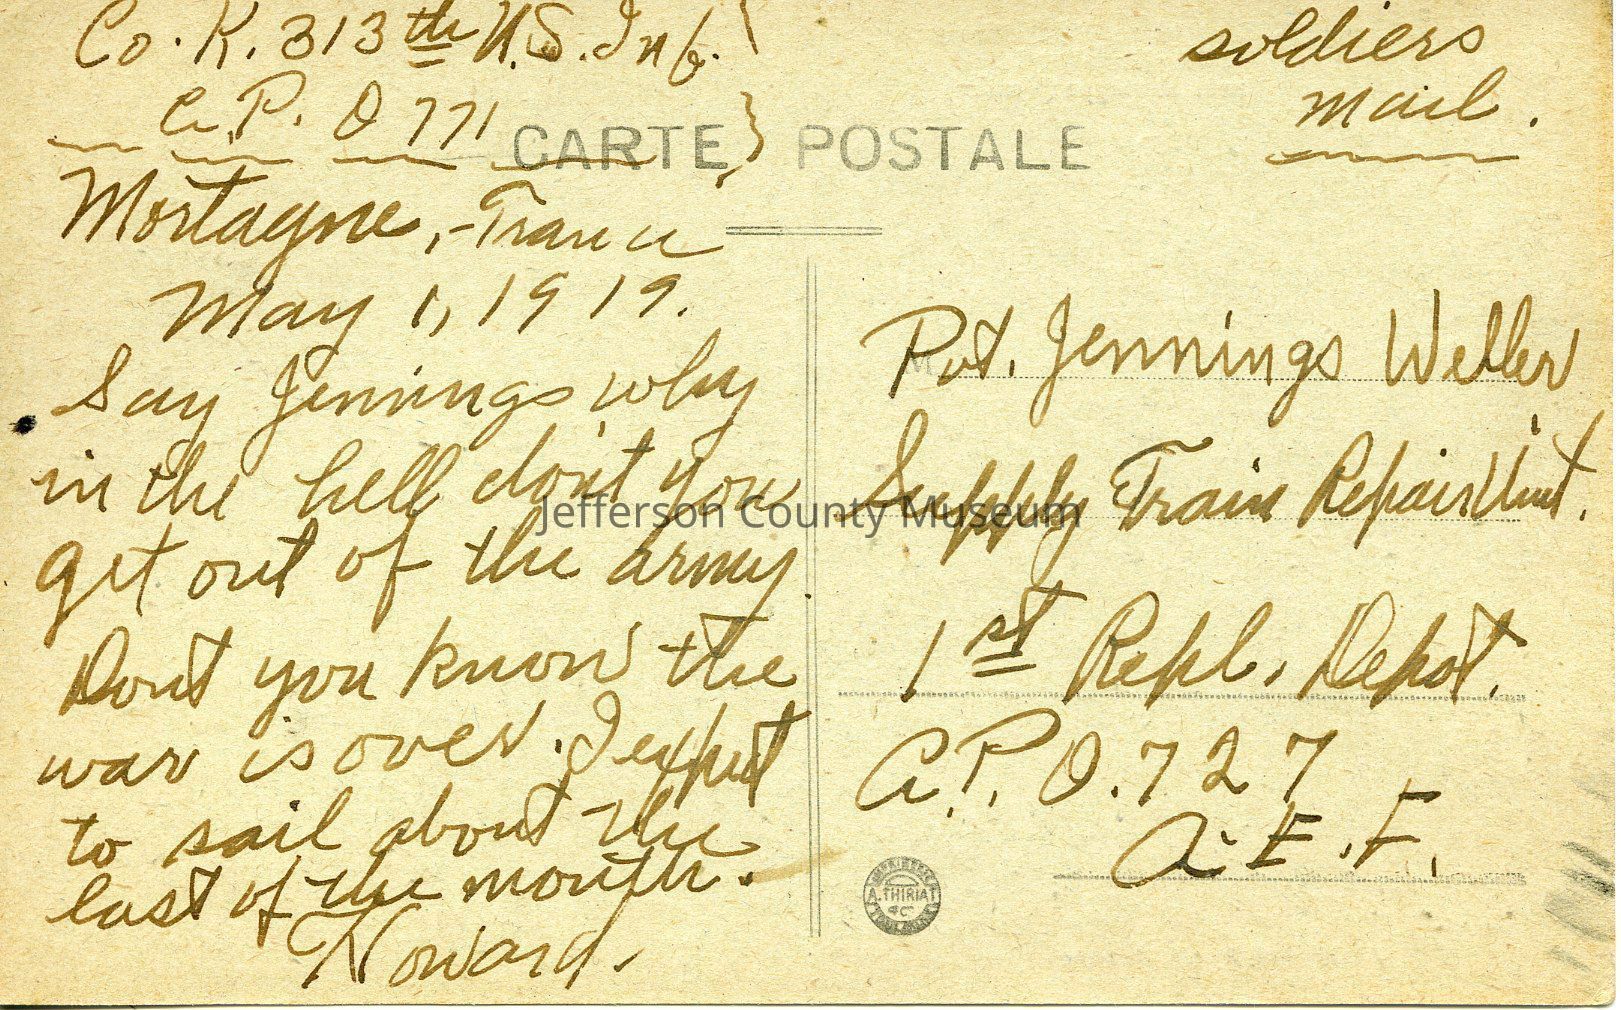 Co. K. 313th U.S. Inf.
A.P.O 771
soldiers
mail.
CARTE POSTALE
Mortagne, - France
May 1, 1919.
Say Jennings why
in the hell don't you
get out of the army
Dont you know the
war is over. I expect
to sail about the
last of the month.
Howard.
Pvt. Jennings Weller
Supply Train Repair Unit.
1st Repl. Depot.
A.P.O. 727
A.E.F.
Jefferson County Museum
A. THIRIAT